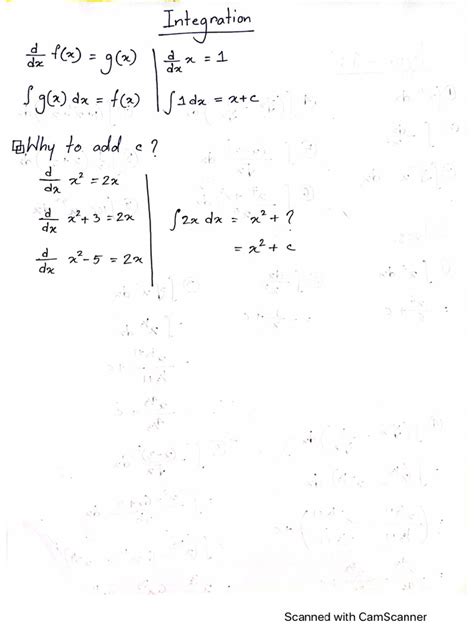 Integration
d/dx f(x) = g(x) | d/dx x = 1
∫ g(x) dx = f(x) | ∫ 1 dx = x + c
Why to add c ?
d/dx x² = 2x
d/dx x² + 3 = 2x | ∫ 2x dx = x² + ?
= x² + c
d/dx x² - 5 = 2x
Scanned with CamScanner